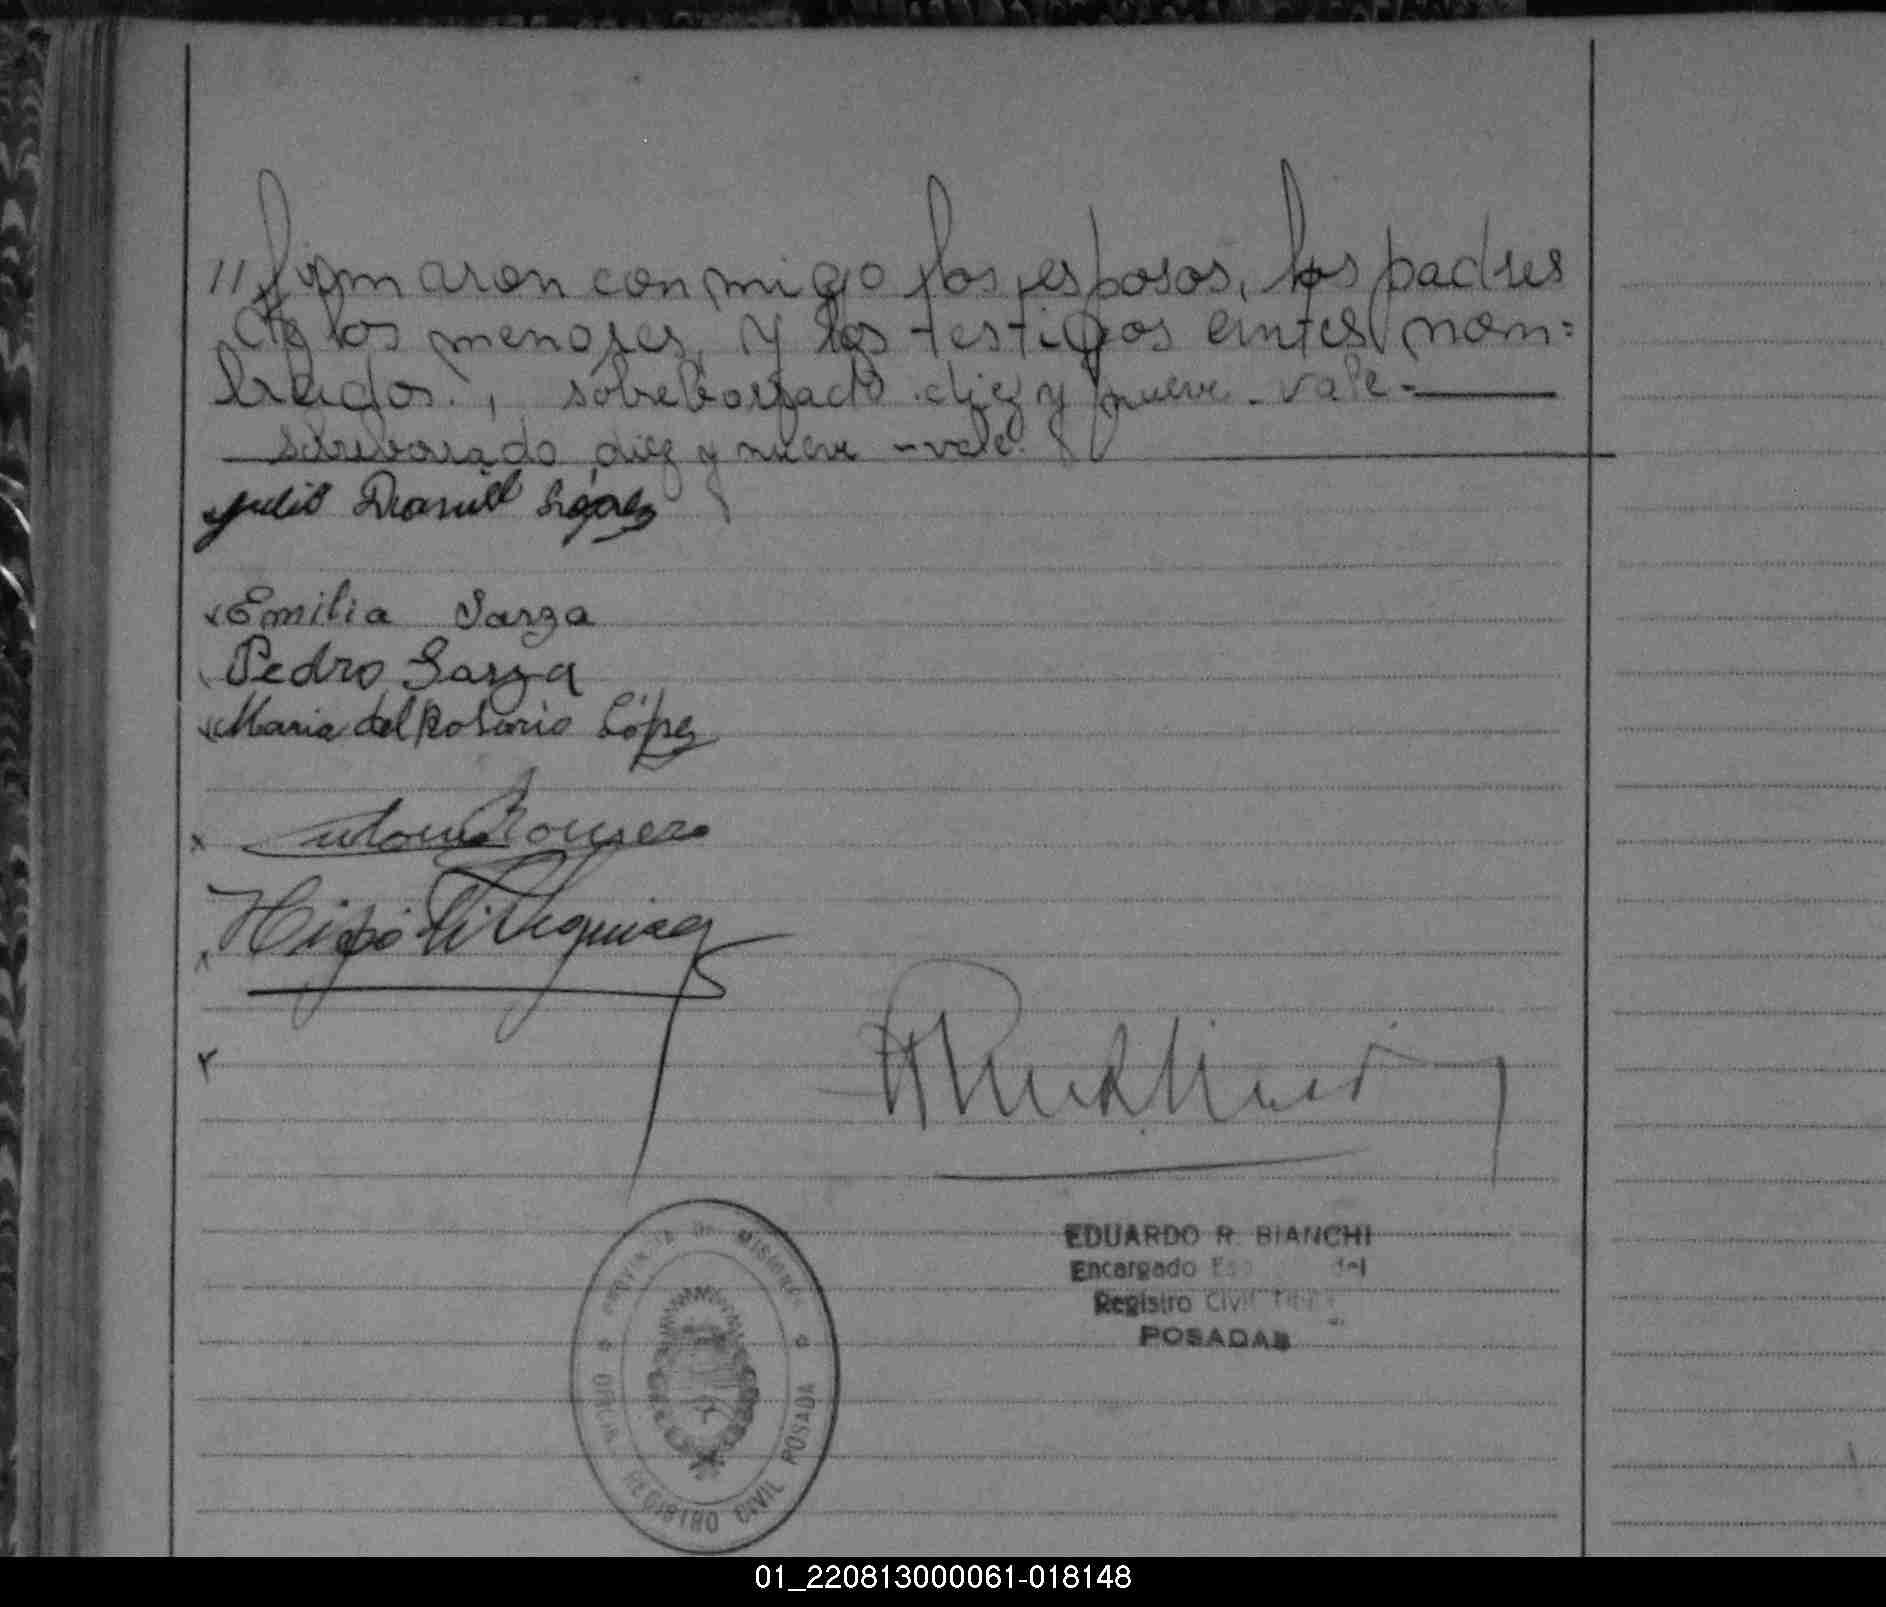 // firmaron conmigo los esposos, los padres
de los menores, y los testigos antes nom=
brados., sobreborrado diez y nueve - vale -
sobreborrado diez y nueve - vale.
Julio Daniel López
x Emilia Sarza
Pedro Sarza
x Maria del Rosario López
x Antonio Romero
x
x
EDUARDO R. BIANCHI
Encargado del
Registro Civil
POSADAS
PROVINCIA DE MISIONES
REGISTRO CIVIL POSADA
01_220813000061-018148